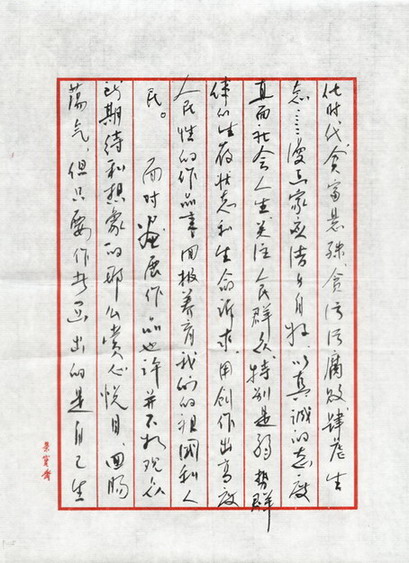 化时代贫富悬殊贪污腐败肆虐生
态……漫画家要洁身自好,以真诚的态度
直面社会人生关注人民群众特别是弱势群
体的生存状态和生命诉求,用创作出高度
人民性的作品来回报养育我们的祖国和人
民。 面对画展作品也许并不如观众
所期待和想象的那么赏心悦目、回肠
荡气,但只要作者画出的是自己生
荣宝斋